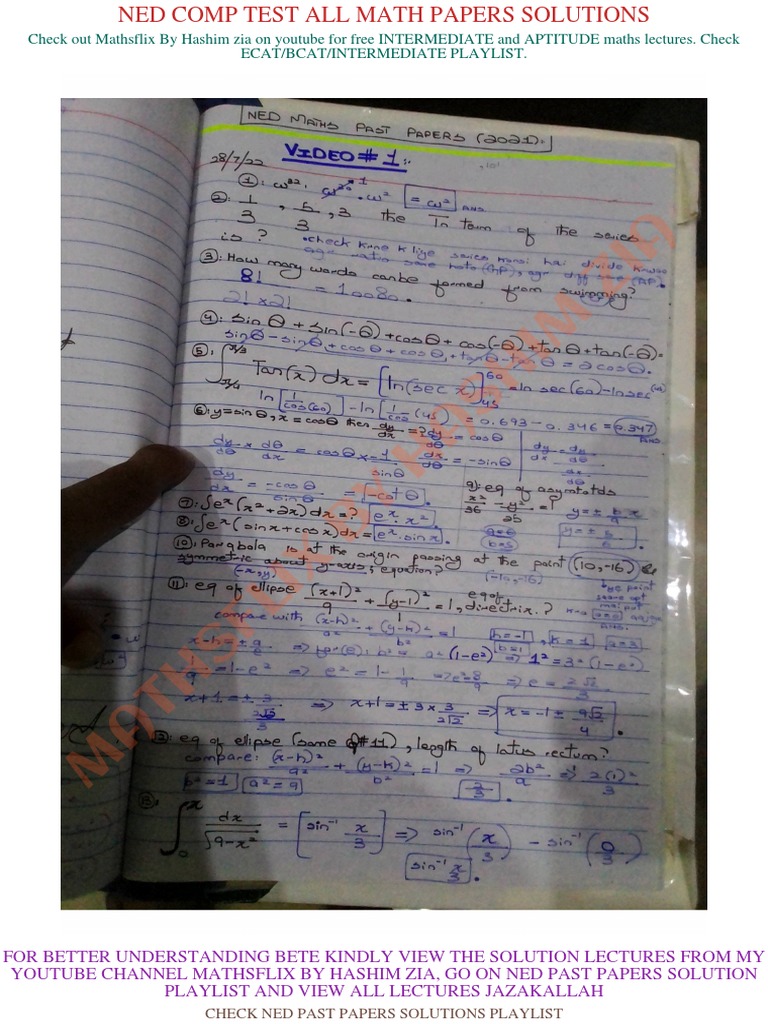 NED COMP TEST ALL MATH PAPERS SOLUTIONS
Check out Mathsflix By Hashim zia on youtube for free INTERMEDIATE and APTITUDE maths lectures. Check
ECAT/BCAT/INTERMEDIATE PLAYLIST.
NED MATHS PAST PAPERS (2021):
28/7/22 VIDEO # 1:
①: ω³². ω³⁰ ¹ . ω² = ω² ANS
②: 1/3, 5/3, 3 the Tn term of the series
is? check krne k liye series konsi hai divide
③: How many words can be formed from swimming?
8! / 2! x 2! = 10080.
④: sin θ + sin(-θ) + cos θ + cos(-θ) + tan θ + tan(-θ) =
sin θ - sin θ + cos θ + cos θ + tan θ - tan θ = 2 cos θ.
⑤: ∫ π/4 π/3 Tan(x) dx = [ln(sec x)] 60 45 = ln sec(60) - ln sec(45)
ln [1/cos(60)] - ln [1/cos(45)] = 0.693 - 0.346 = 0.347 ANS
⑥: y = sin θ, x = cos θ then dy/dx = ? dy/dθ = cos θ
dy/dθ x dθ/dx = cos θ x -1/sin θ dx/dθ = -sin θ
dy/dx = -cos θ / sin θ = -cot θ.
9): eq of asymptotds
x²/36 - y²/25 = 1 y = ± b/a x
a=6
b=5
⑦: ∫eˣ(x² + 2x) dx = ? eˣ. x².
⑧: ∫eˣ(sin x + cos x) dx = eˣ. sin x.
⑩: Parabola is at the origin passing at the point (10, -16) &
symmetric about y-axis, equation?
(-x, y) (-10, -16)
⑪: eq of ellipse (x+1)²/9 + (y-1)²/1 = 1, eq of directrix.?
compare with (x-h)²/a² + (y-k)²/b² = 1 h=-1, k=1, a=3
b=1
x-h = ± a/e => for(e): b² = a²(1-e²) => 1² = 3²(1-e²)
1/9 = 1-e² => e² = 1 - 1/9 => e² = 8/9 => e = 2√2/3
x+1 = ± 3 / 2√2/3 => x+1 = ± 3 x 3/2√2 => x = -1 ± 9√2/4.
⑫: eq of ellipse (same Q# 11), length of latus rectum?
compare: (x-h)²/a² + (y-k)²/b² = 1 => 2b²/a => 2(1)²/3
b² = 1 a² = 9 2/3.
⑬: ∫ 0 x dx/√9-x² = [sin⁻¹ x/3] => sin⁻¹ (x/3) - sin⁻¹ (0/3)
sin⁻¹ x/3.
MATHSFLIX BY HASHIM ZIA
FOR BETTER UNDERSTANDING BETE KINDLY VIEW THE SOLUTION LECTURES FROM MY
YOUTUBE CHANNEL MATHSFLIX BY HASHIM ZIA, GO ON NED PAST PAPERS SOLUTION
PLAYLIST AND VIEW ALL LECTURES JAZAKALLAH
CHECK NED PAST PAPERS SOLUTIONS PLAYLIST